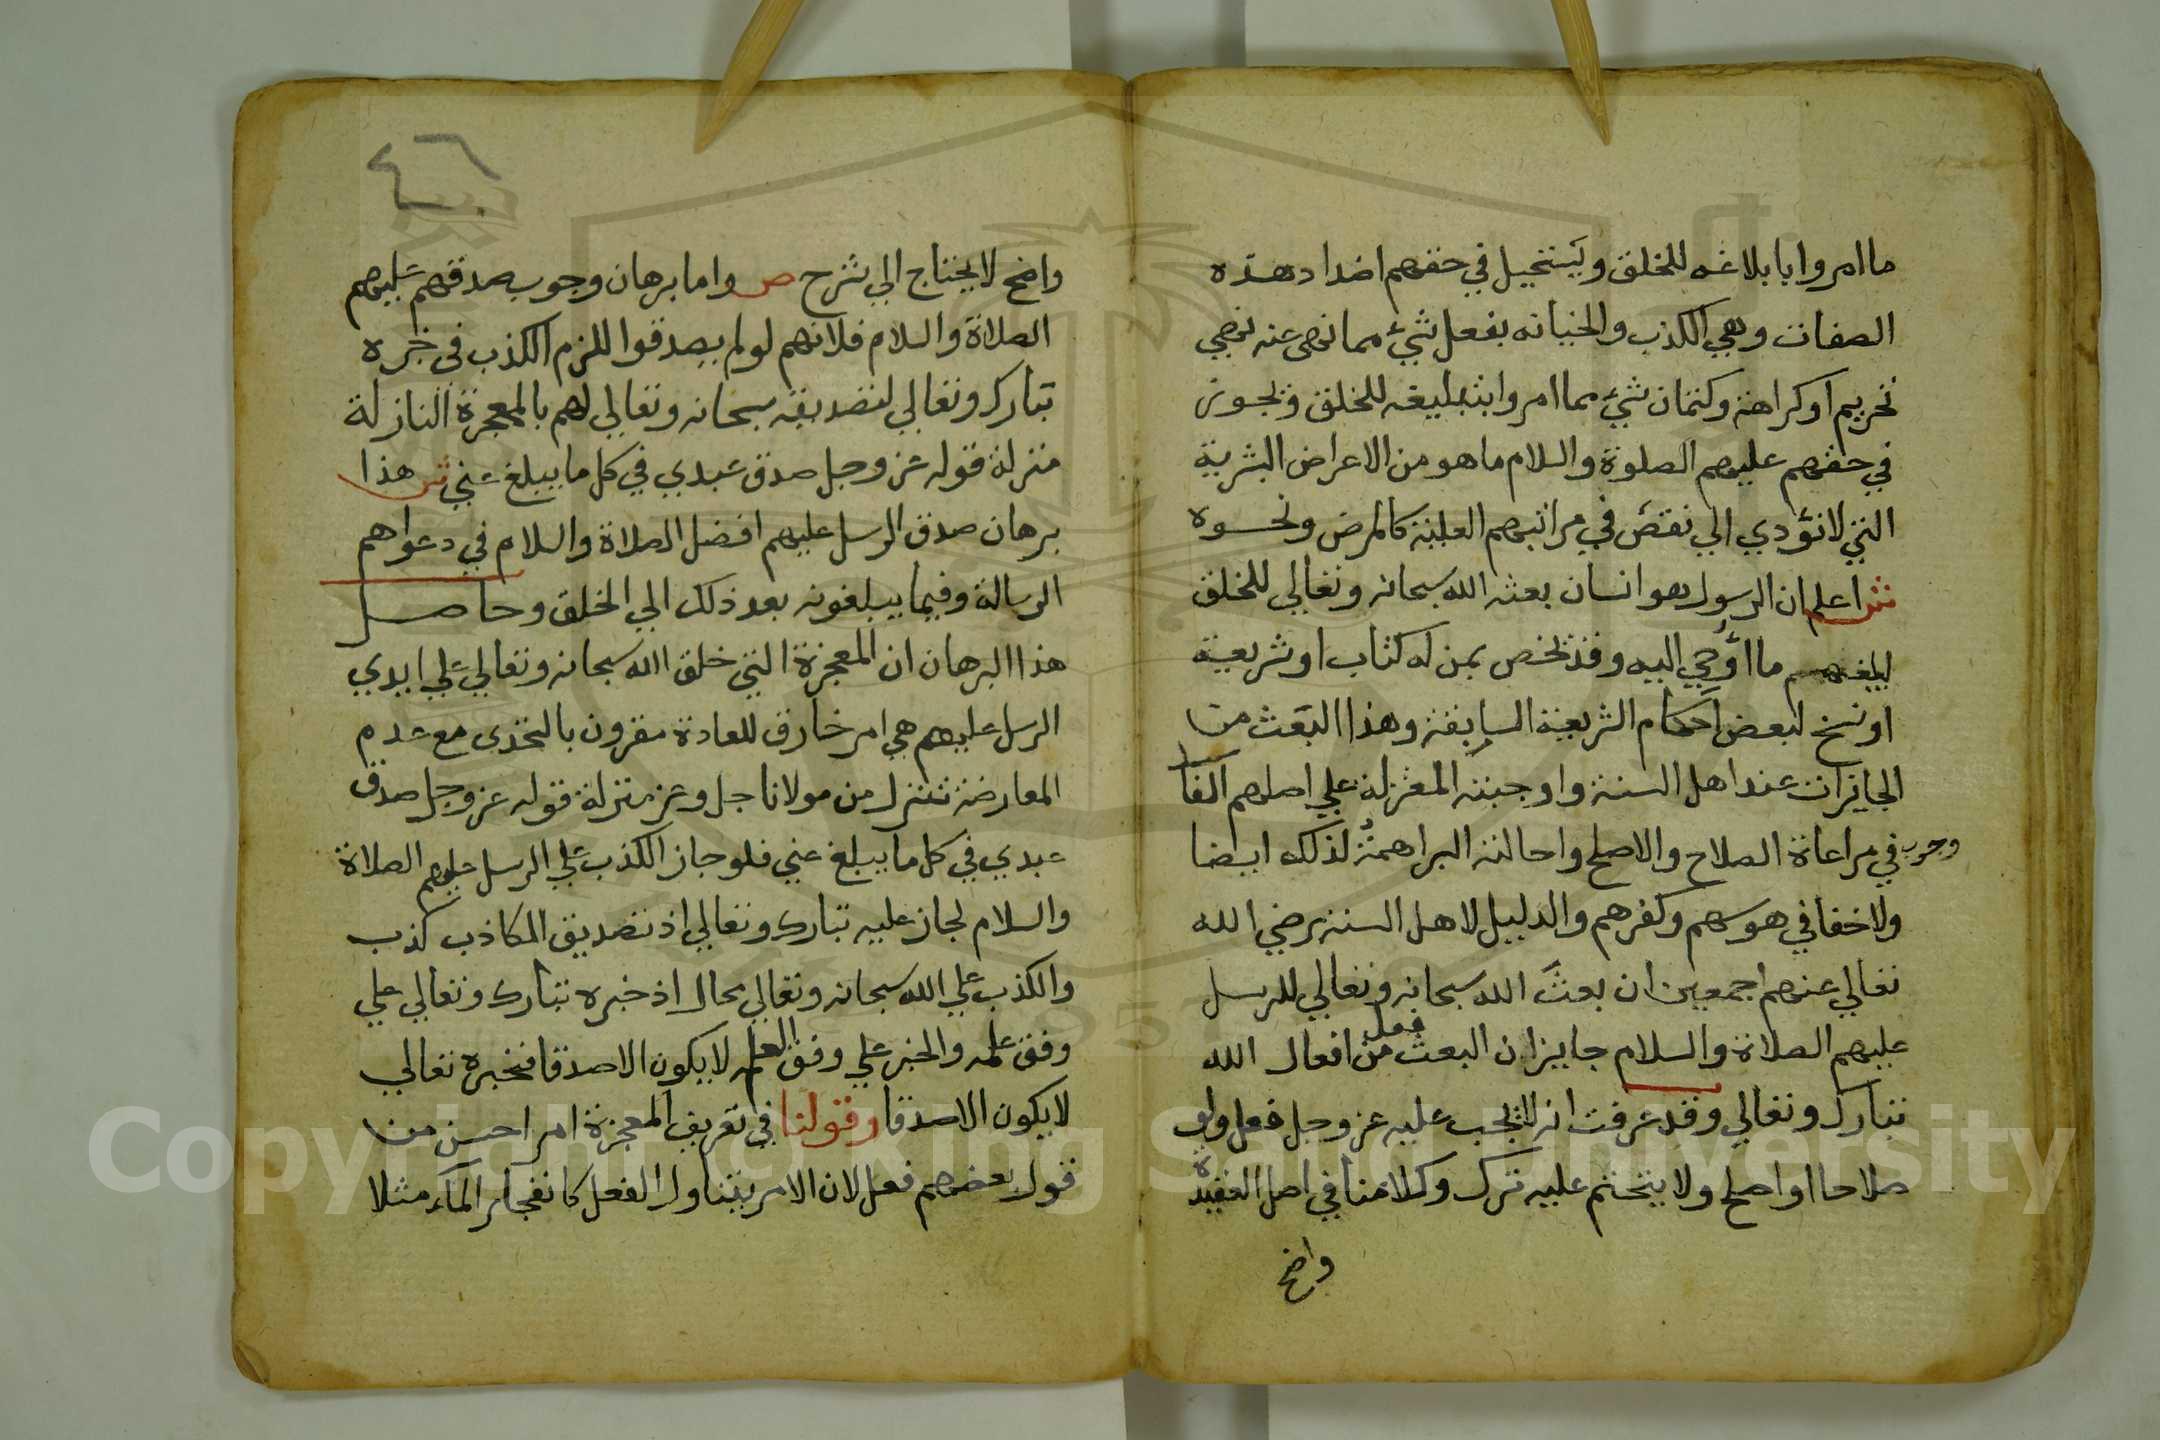 ما امروا بابلاغه للخلق ويستحيل في حقهم اضداد هذه
الصفات وهي الكذب والخيانه بفعل شيء مما نهى عنه نهي
تحريم او كراهة وكتمان شيء مما امروا بتبليغه للخلق ويجوز
في حقهم عليهم الصلوة والسلام ما هو من الاعراض البشرية
التي لا تؤدي الي نقص في مراتبهم العلية كالمرض ونحوه
ش اعلم ان الرسول هو انسان بعثه الله سبحانه وتعالي للخلق
ليبلغهم ما اوحي اليه وقد يخص بمن له كتاب او شريعة
او نسخ لبعض احكام الشريعة السابقة وهذا البعث من
الجايزات عند اهل السنة واوجبته المعتزلة علي اصلهم الفا
وجوب في مراعاة الصلاح والاصلح واحالته البراهمة لذلك ايضا
ولا خفا في هوسهم وكفرهم والدليل لاهل السنة رضي الله
تعالي عنهم اجمعين ان بعث الله سبحانه وتعالي للرسل
عليهم الصلاة والسلام جايز ان البعث فعل من افعال الله
تبارك وتعالي وقد عرفت انه لا يجب عليه عز وجل فعل ولو
صلاحا او اصلح ولا يتحتم عليه ترك وكلامنا في اصل العقيدة
واضح
واضح لا يحتاج الي شرح ص واما برهان وجوب صدقهم عليهم
الصلاة والسلام فلانهم لو لم يصدقوا للزم الكذب في خبره
تبارك وتعالي لتصديقه سبحانه وتعالي لهم بالمعجزة النازلة
منزلة قوله عز وجل صدق عبدي في كل ما يبلغ عني ش هذا
برهان صدق الرسل عليهم افضل الصلاة والسلام في دعواهم
الرسالة وفيما يبلغونه بعد ذلك الي الخلق وحاصل
هذا البرهان ان المعجزة التي خلق الله سبحانه وتعالي علي ايدي
الرسل عليهم هي امر خارق للعادة مقرون بالتحدى مع عدم
المعارضة تتنزل من مولانا جل وعز منزلة قوله عز وجل صدق
عبدي في كل ما يبلغ عني فلو جاز الكذب علي الرسل عليهم الصلاة
والسلام لجاز عليه تبارك وتعالي اذ تصديق الكاذب كذب
والكذب علي الله سبحانه وتعالي محال اذ خبره تبارك وتعالي علي
وفق علمه والخبر علي وفق العلم لا يكون الا صدقا فخبره تعالي
لا يكون الا صدقا وقولنا في تعريف المعجزة امر احسن من
قول بعضهم فعل لان الامر يتناول الفعل كانفجار الماء مثلا
Copyright © King Saud University